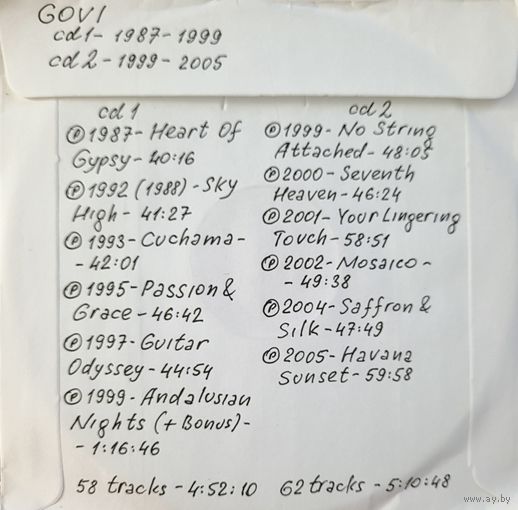 GOVI
cd1- 1987-1999
cd2 - 1999 - 2005
cd 1
℗1987- Heart Of
Gypsy- 40:16
℗1992 (1988) - Sky
High- 41:27
℗ 1993-Cuchama-
- 42:01
℗ 1995-Passion &
Grace - 46:42
℗ 1997- Guitar
Odyssey- 44:54
℗ 1999- Andalusian
Nights (+ Bonus)-
- 1:16:46
58 tracks - 4:52:10
cd 2
℗1999 - No String
Attached- 48:05
℗ 2000 - Seventh
Heaven - 46:24
℗ 2001- Your Lingering
Touch - 58:51
℗ 2002 - Mosaico -
- 49:38
℗ 2004 - Saffron &
Silk - 47:49
℗ 2005 - Havana
Sunset- 59:58
62 tracks - 5:10:48
www.ay.by